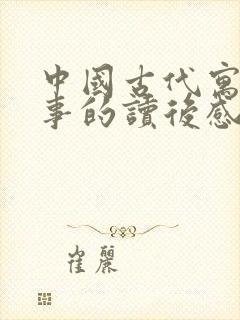 中國古代寓
事的讀後感
崔麗